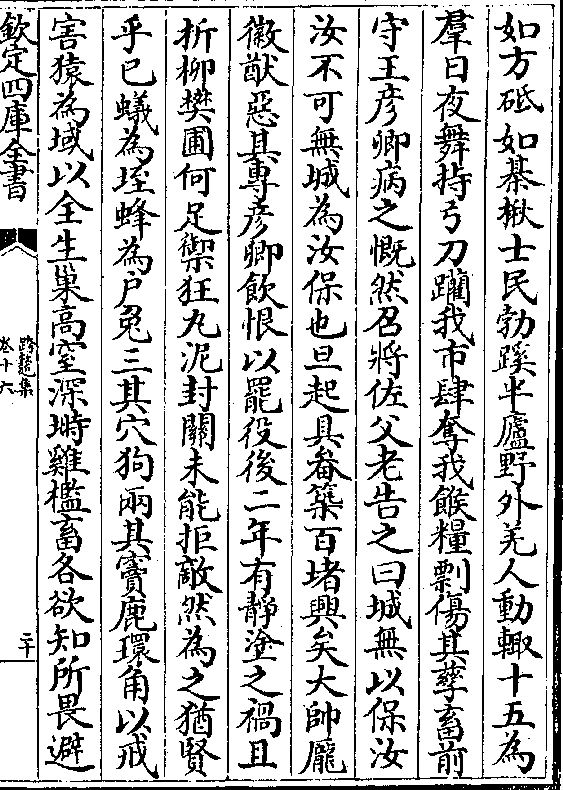 如方砥如棊楸士民勃蹊半廬野外羌人動輙十五為
羣日夜舞持弓刀躪我市肆奪我餱糧剽傷其孳畜前
守王彦卿病之慨然召將佐父老告之曰城無以保汝
汝不可無城為汝保也旦起具畚築百堵興矣大帥龎
徽猷惡其專彦卿飲恨以罷役後二年有靜塗之禍且
折柳樊圃何足禦狂九泥封關未能拒敵然為之猶賢
乎已蟻為垤蜂為户兔三其穴狗兩其竇鹿環角以戒
害猿為域以全生巢髙室深塒雞檻畜各欲知所畏避
欽定四庫全書
跨鼇集
卷十六
二十